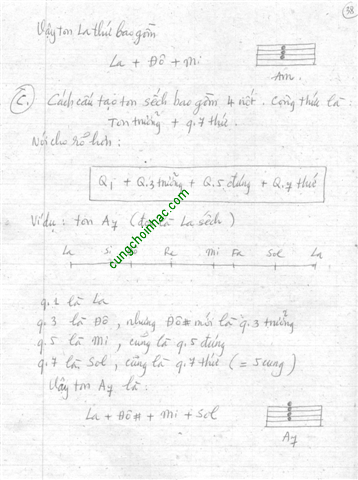 38
Vậy ton La thứ bao gồm
La + Đô + Mi
Am.
C. Cách cấu tạo ton sếch bao gồm 4 nốt. Công thức là :
Ton trưởng + q.7 thứ.
Nói cho rõ hơn :
Q1 + Q.3 trưởng + Q.5 đúng + Q.7 thứ
Ví dụ : ton A7 (đọc là La sếch)
La Si Re Mi Fa Sol La
cungchoinhac.com
q.1 là La
q.3 là Đô, nhưng Đô# mới là q.3 trưởng
q.5 là Mi, cũng là q.5 đúng
q.7 là Sol, cũng là q.7 thứ (= 5 cung)
Vậy ton A7 là :
La + Đô# + Mi + Sol
A7